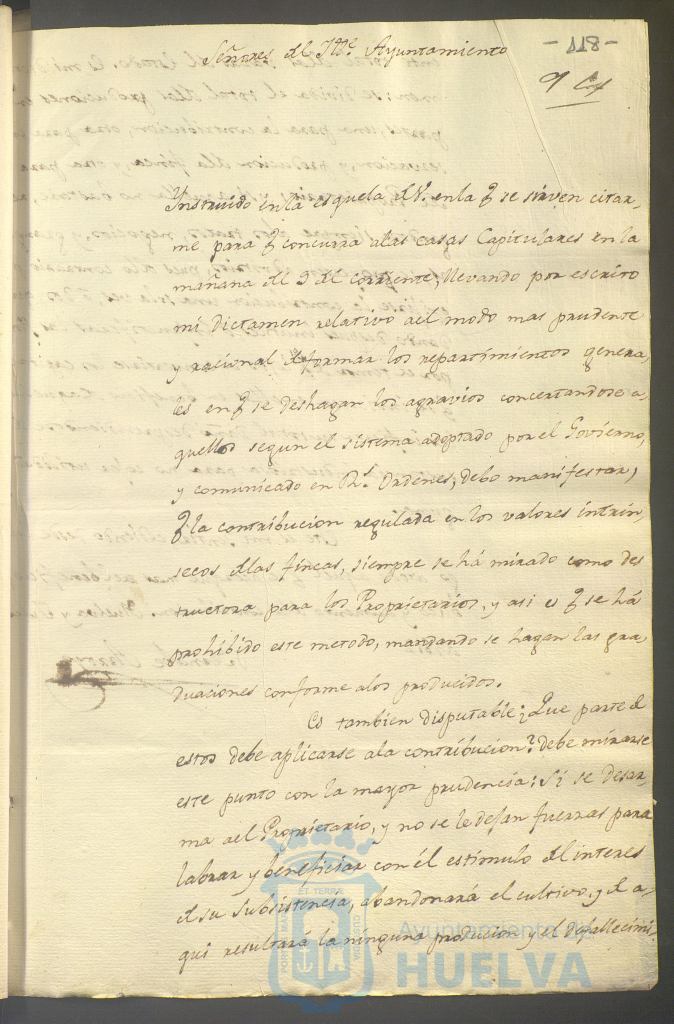 Señores del Ille. Ayuntamiento
-118-
Instruido en la esquela d V. en la q se sirven citar-
me para q concurra alas casas Capitulares en la
mañana del 9 del corriente, llevando por escrito
mi dictamen relativo ael modo mas prudente
y racional de formar los repartimientos genera,
les en q se deshagan los agravios concertandose a,
quellos segun el sistema adoptado por el Govierno,
y comunicado en Rs. Ordenes, debo manifestar,
q la contribucion regulada en los valores intrin-
secos dlas fincas, siempre se há mirado como des
tructora para los Proprietarios, y asi es q se há
prohibido este metodo, mandando se hagan las gra,
duaciones conforme alos producidos.
Es tambien disputable; Que parte d
estos debe aplicarse ala contribucion? debe mirarse
este punto con la mayor prudencia: Si se desar-
ma ael Proprietario, y no se le dejan fuerzas para
labrar y beneficiar con él estimulo del interes
d su subsistencia, abandonará el cultivo, y d a-
qui resultará la ninguna producion y el desfallecimi-
PORTUS MARIS ET TERRÆ CUSTODIA
Ayuntamiento de
HUELVA